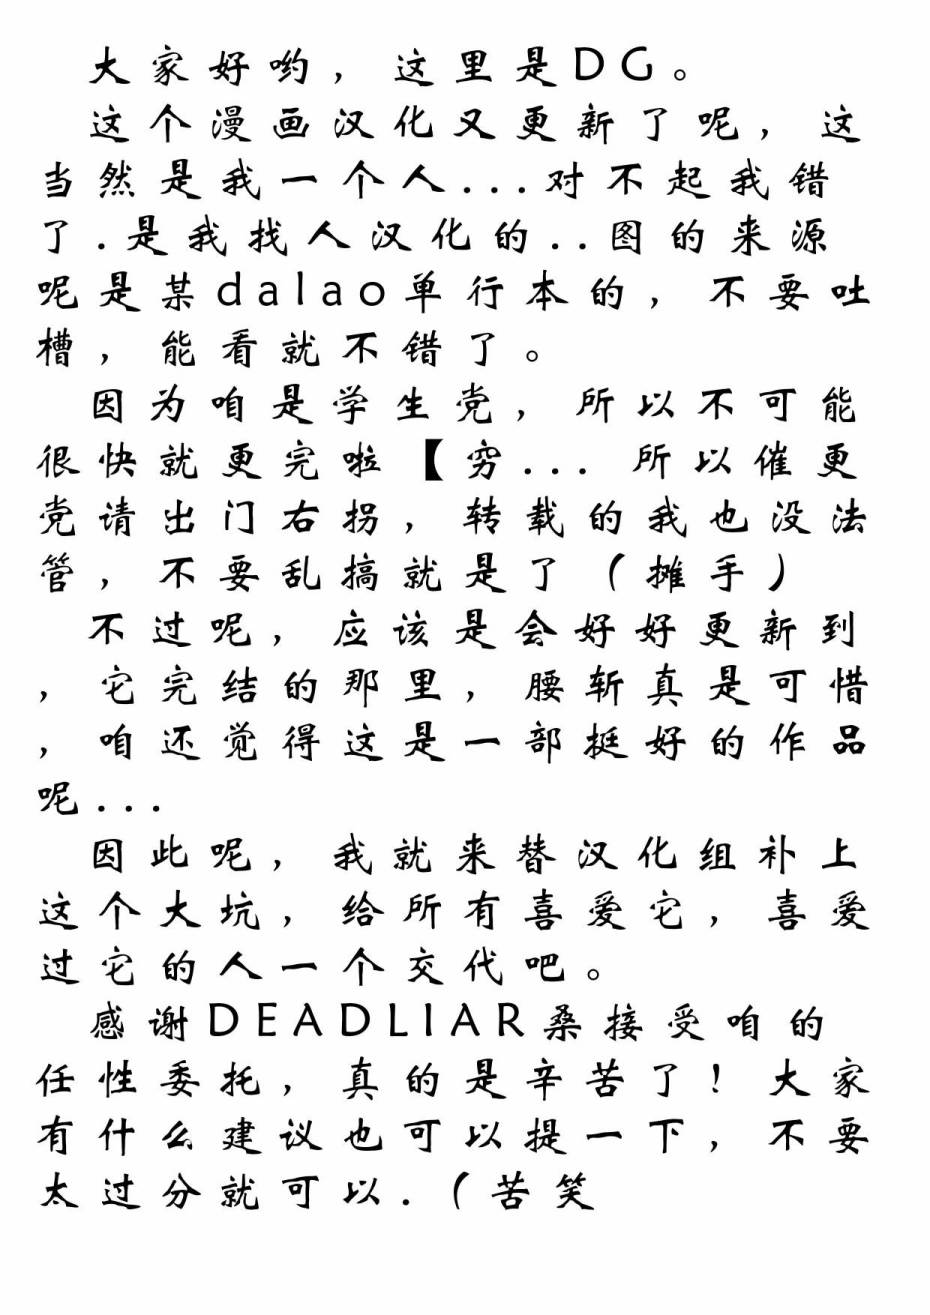 大家好哟，这里是DG。
这个漫画汉化又更新了呢，这
当然是我一个人...对不起我错
了.是我找人汉化的..图的来源
呢是某dalao单行本的，不要吐
槽，能看就不错了。
因为咱是学生党，所以不可能
很快就更完啦【穷...所以催更
党请出门右拐，转载的我也没法
管，不要乱搞就是了（摊手）
不过呢，应该是会好好更新到
，它完结的那里，腰斩真是可惜
，咱还觉得这是一部挺好的作品
呢...
因此呢，我就来替汉化组补上
这个大坑，给所有喜爱它，喜爱
过它的人一个交代吧。
感谢DEADLIAR桑接受咱的
任性委托，真的是辛苦了！大家
有什么建议也可以提一下，不要
太过分就可以.（苦笑